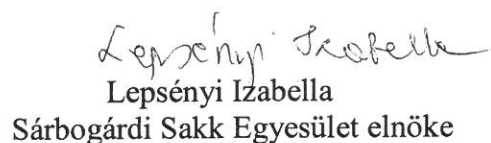 Lepsényi Izabella
Lepsényi Izabella
Sárbogárdi Sakk Egyesület elnöke